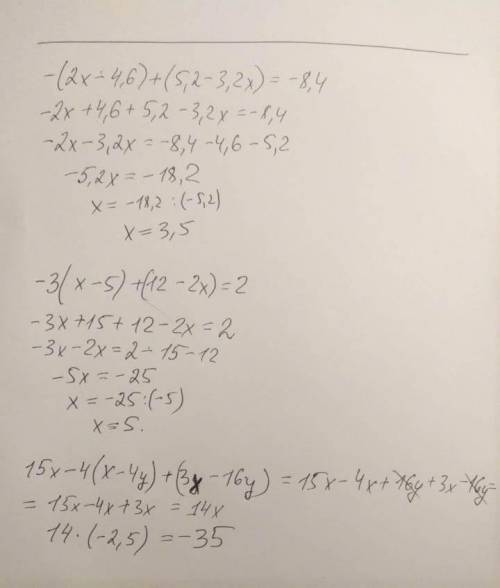 -(2x-4,6)+(5,2-3,2x)=-8,4
-2x+4,6+5,2-3,2x=-8,4
-2x-3,2x=-8,4-4,6-5,2
-5,2x=-18,2
x=-18,2:(-5,2)
x=3,5
-3(x-5)+(12-2x)=2
-3x+15+12-2x=2
-3x-2x=2-15-12
-5x=-25
x=-25:(-5)
x=5.
15x-4(x-4y)+(3x-16y)=15x-4x+16y+3x-16y=
=15x-4x+3x=14x
14·(-2,5)=-35